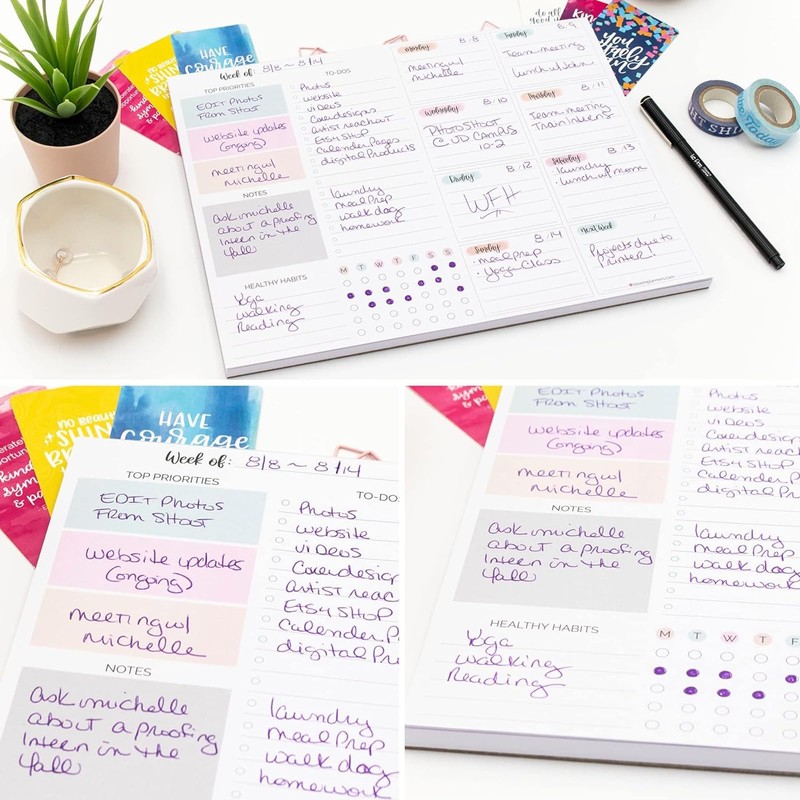 HAVE
courage
You
Week of: 8/8 ~ 8/14
EDIT Photos
From Shoot
website updates
(ongoing)
meeting w/
michelle
NOTES
ask michelle
about a proofing
Intern in the
fall
HEALTHY HABITS
Yoga
walking
Reading
TO-DOS
Photos
website
videos
Cover designs
artist reachout
Etsy Shop
Calender Pages
digital Products
laundry
meal Prep
walk dog
homework
M T W T F S S
Monday 8.8
meeting w/
michelle
Tuesday 8.9
Team meeting
Lunch w/ John
Wednesday 8/10
PHOTOSHOOT
@ UD CAMPUS
10-2
Thursday 8/11
Team meeting
Train Interns
Friday 8.12
WFH
Saturday 8.13
· laundry
· lunch w/ mom
Sunday 8/14
· meal prep
· Yoga Class
next week
Projects due to
Printer!
NO
SHIN
BR
HAVE
courage
kind
sym
& pa
Week of: 8/8 ~ 8/14
TOP PRIORITIES
EDIT Photos
From Shoot
website updates
(ongoing)
meeting w/
michelle
NOTES
ask michelle
about a proofing
Intern in the
fall
TO-DO
Photos
website
videos
Cover design
artist reac
Etsy Shop
Calender P
digital Pr
laundry
meal Prep
walk dog
homework
EDIT Photos
From Shoot
website updates
(ongoing)
meeting w/
michelle
NOTES
ask michelle
about a proofing
Intern in the
fall
HEALTHY HABITS
Yoga
walking
Reading
Photos
website
videos
Cover design
artist reac
Etsy Shop
Calender P
digital Pr
laundry
meal Prep
walk dog
homework
M T W T F